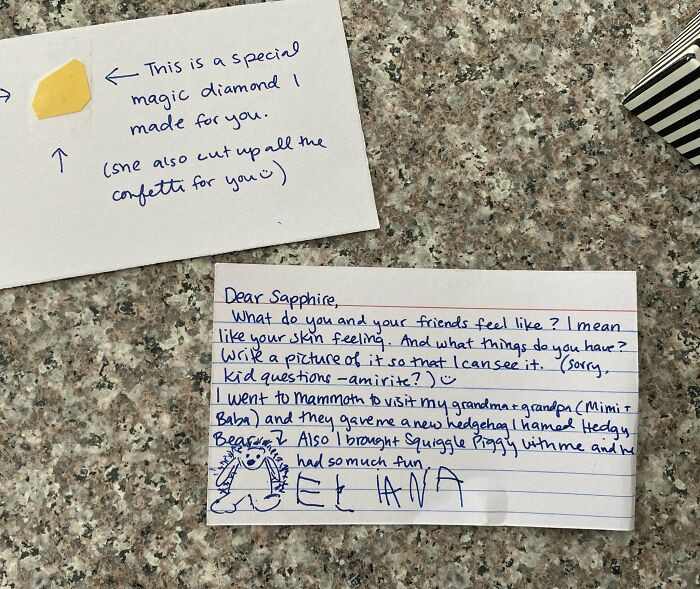 This is a special
magic diamond I
made for you.
(she also cut up all the
confetti for you)
Dear Sapphire,
What do you and your friends feel like? I mean
like your skin feeling. And what things do you have?
Write a picture of it so that I can see it. (sorry,
kid questions - amirite?)
I went to Mammoth to visit my grandma + grandpa (Mimi +
Baba) and they gave me a new hedgehog I named Hedgy
Bear. Also I brought Squiggle Piggy with me and he
had so much fun.
ELIANA